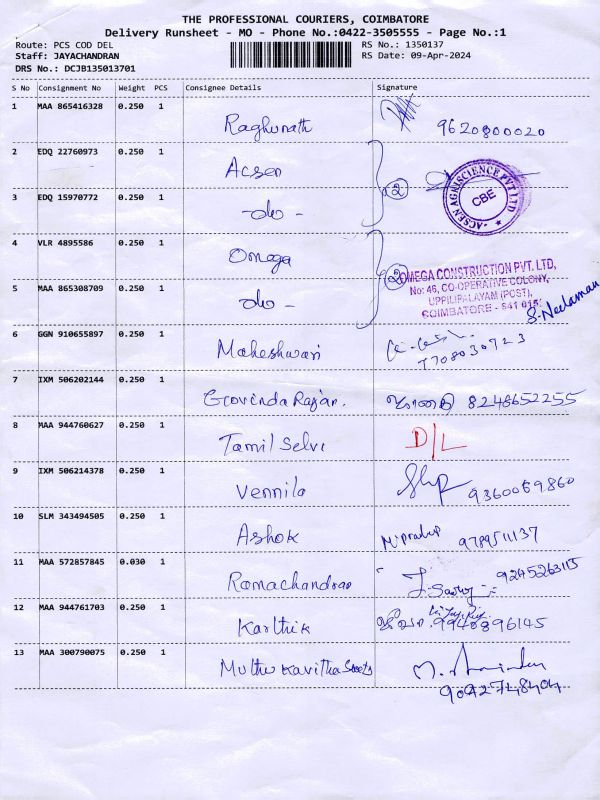 THE PROFESSIONAL COURIERS, COIMBATORE
Delivery Runsheet - MO - Phone No.:0422-3505555 - Page No.:1
Route: PCS COD DEL
RS No.: 1350137
Staff: JAYACHANDRAN
RS Date: 09-Apr-2024
DRS No.: DCJB135013701
S No Consignment No Weight PCS Consignee Details Signature
1 MAA 865416328 0.250 1
Raghunath 9620800020
2 EDQ 22760973 0.250 1
Acsen
2
ACSEN AGRISCIENCE PVT LTD
CBE
3 EDQ 15970772 0.250 1
-do-
4 VLR 4895586 0.250 1
Omega
2
OMEGA CONSTRUCTION PVT. LTD,
No: 46, CO-OPERATIVE COLONY,
UPPILIPALAYAM (POST),
COIMBATORE - 641 015.
5 MAA 865308709 0.250 1
-do-
S. Neelaman
6 GGN 910655897 0.250 1
Maheshwari
7708030723
7 IXM 506202144 0.250 1
Govinda Rajan. 8248652255
8 MAA 944760627 0.250 1
Tamil Selvi D/L
9 IXM 506214378 0.250 1
Vennila 9360069860
10 SLM 343494505 0.250 1
Ashok 9789511137
11 MAA 572857845 0.030 1
Ramachandran 9245263115
12 MAA 944761703 0.250 1
Karthik 9940896145
13 MAA 300790075 0.250 1
Muthu Kavitha Sweets
9042748404